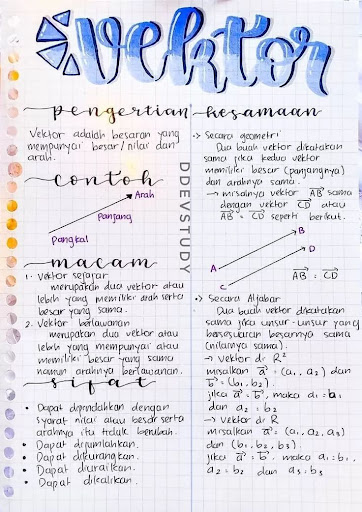 Vektor
pengertian
Vektor adalah besaran yang
mempunyai besar/nilai dan
arah.
contoh
Arah
Panjang
Pangkal
macam
1. Vektor sejajar
merupakan dua vektor atau
lebih yang memiliki arah serta
besar yang sama.
2. Vektor berlawanan
merupakan dua vektor atau
lebih yang mempunyai atau
memiliki besar yang sama
namun arahnya berlawanan.
sifat
• Dapat dipindahkan dengan
syarat nilai atau besar serta
arahnya itu tidak berubah.
• Dapat dijumlahkan.
• Dapat dikurangkan.
• Dapat diuraikan.
• Dapat dikalikan.
DDEVSTUDY
kesamaan
-> Secara geometri
Dua buah vektor dikatakan
sama jika kedua vektor
memiliki besar (panjangnya)
dan arahnya sama.
→ misalnya vektor AB sama
dengan vektor CD atau
AB = CD seperti berikut.
B
D
A
C
AB = CD
-> Secara Aljabar
Dua buah vektor dikatakan
sama jika unsur-unsur yang
bersesuaian besarnya sama
(nilainya sama).
→ vektor di R²
misalkan a = (a₁, a₂) dan
b = (b₁, b₂).
jika a = b, maka a₁ = b₁
dan a₂ = b₂
→ vektor di R
misalkan a = (a₁, a₂, a₃)
dan (b₁, b₂, b₃).
jika a = b, maka a₁ = b₁,
a₂ = b₂ dan a₃ = b₃